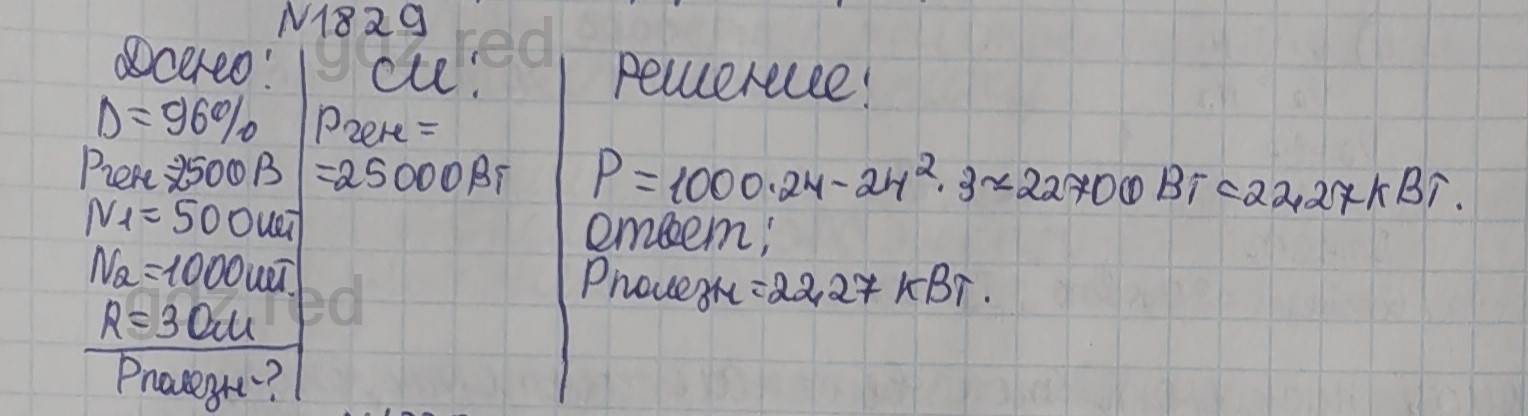 N1829
Дано:
D=96%
Pген=2500В
N1=500шт
N2=1000шт.
R=3Ом
Pполезн-?
СИ:
Pген=
=25000Вт
Решение:
P=1000·24-24²·3≈22700Вт=22,27кВт.
Ответ:
Pполезн=22,27 кВт.
gdz.red
gdz.red